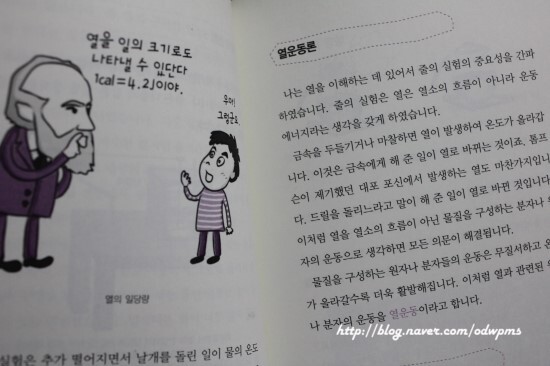 열을 일의 크기로도
나타낼 수 있단다
1cal=4.2J이야.
우아!
그렇군요.
열의 일당량
실험은 추가 떨어지면서 날개를 돌린 일이 물의 온도
열운동론
나는 열을 이해하는 데 있어서 줄의 실험의 중요성을 간파
하였습니다. 줄의 실험은 열은 열소의 흐름이 아니라 운동
에너지라는 생각을 갖게 하였습니다.
금속을 두들기거나 마찰하면 열이 발생하여 온도가 올라갑
니다. 이것은 금속에게 해 준 일이 열로 바뀌는 것이죠. 톰프
슨이 제기했던 대포 포신에서 발생하는 열도 마찬가지입니
다. 드릴을 돌리느라고 말이 해 준 일이 열로 바뀐 것입니다.
이처럼 열을 열소의 흐름이 아닌 물질을 구성하는 분자나 원
자의 운동으로 생각하면 모든 의문이 해결됩니다.
물질을 구성하는 원자나 분자들의 운동은 무질서하고 온
가 올라갈수록 더욱 활발해집니다. 이처럼 열과 관련된 원
나 분자의 운동을 열운동이라고 합니다.
http://blog.naver.com/odwpms